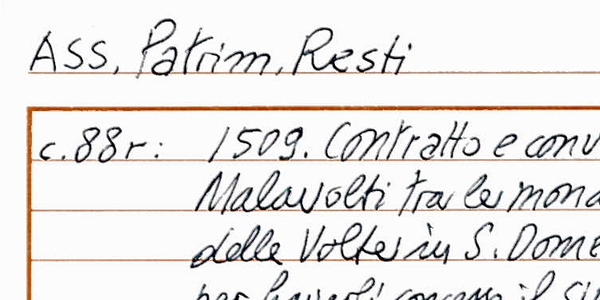 ASS, Patrim. Resti
c. 88r: 1509. Contratto e conv
Malavolti tra le mona
delle Volte in S. Dome
per